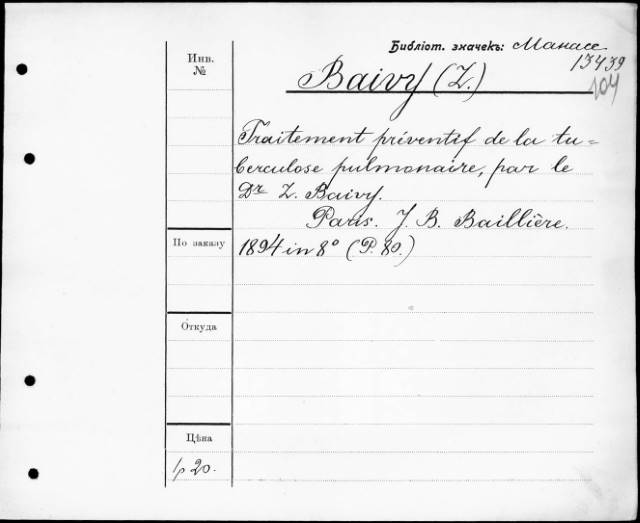 Библіот. значекъ: Манасе
13439
104
Инв.
№
Baivy (Z.)
Traitement préventif de la tu=
berculose pulmonaire, par le
Dr Z. Baivy.
Paris. J. B. Baillière.
По заказу
1894 in 8° (P. 80.)
Откуда
Цѣна
1 р 20.